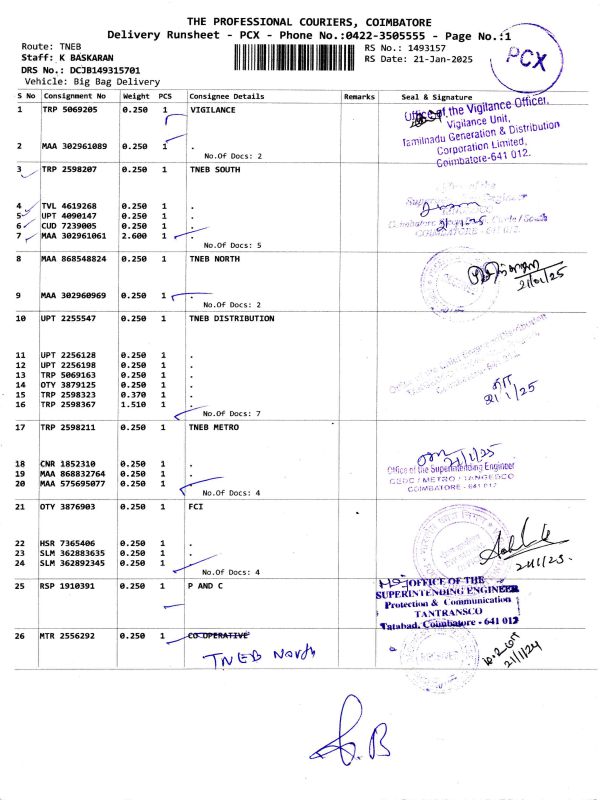 THE PROFESSIONAL COURIERS, COIMBATORE
Delivery Runsheet - PCX - Phone No.:0422-3505555 - Page No.:1
Route: TNEB
RS No.: 1493157
Staff: K BASKARAN
RS Date: 21-Jan-2025
DRS No.: DCJB149315701
Vehicle: Big Bag Delivery
PCX
S No Consignment No Weight PCS Consignee Details Remarks Seal & Signature
1 TRP 5069205 0.250 1 VIGILANCE
Office of the Vigilance Officer,
Vigilance Unit,
Tamilnadu Generation & Distribution
Corporation Limited,
Coimbatore-641 012.
2 MAA 302961089 0.250 1 .
No.Of Docs: 2
3 TRP 2598207 0.250 1 TNEB SOUTH
4 TVL 4619268 0.250 1 .
5 UPT 4090147 0.250 1 .
6 CUD 7239005 0.250 1 .
7 MAA 302961061 2.600 1 .
No.Of Docs: 5
8 MAA 868548824 0.250 1 TNEB NORTH
21/01/25
9 MAA 302960969 0.250 1 .
No.Of Docs: 2
10 UPT 2255547 0.250 1 TNEB DISTRIBUTION
11 UPT 2256128 0.250 1 .
12 UPT 2256198 0.250 1 .
13 TRP 5069163 0.250 1 .
14 OTY 3879125 0.250 1 .
15 TRP 2598323 0.370 1 .
16 TRP 2598367 1.510 1 .
21/1/25
No.Of Docs: 7
17 TRP 2598211 0.250 1 TNEB METRO
21/1/25
Office of the Superintending Engineer
CEDC / METRO / TANGEDCO
COIMBATORE - 641 012
18 CNR 1852310 0.250 1 .
19 MAA 868832764 0.250 1 .
20 MAA 575695077 0.250 1 .
No.Of Docs: 4
21 OTY 3876903 0.250 1 FCI
22 HSR 7365406 0.250 1 .
23 SLM 362883635 0.250 1 .
24 SLM 362892345 0.250 1 .
21/1/25.
No.Of Docs: 4
25 RSP 1910391 0.250 1 P AND C
OFFICE OF THE
SUPERINTENDING ENGINEER
Protection & Communication
TANTRANSCO
Tatabad, Coimbatore - 641 012
26 MTR 2556292 0.250 1 CO OPERATIVE
TNEB North
21/1/24